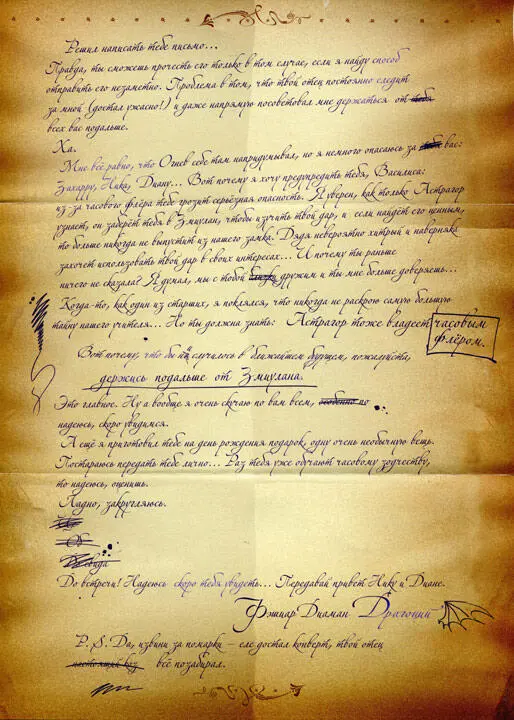 Решил написать тебе письмо...
Правда, ты сможешь прочесть его только в том случае, если я найду способ
отправить его незаметно. Проблема в том, что твой отец постоянно следит
за мной (достал ужасно!) и даже напрямую посоветовал мне держаться от тебя
всех вас подальше.
Ха.
Мне всё равно, что Огнев себе там напридумывал, но я немного опасаюсь за вас:
Захарру, Ника, Диану... Вот почему я хочу предупредить тебя, Василиса:
из-за часового флёра тебе грозит серьёзная опасность. Я уверен, как только Астрагор
узнает, он заберёт тебя в Змиулан, чтобы изучить твой дар, и если найдёт его ценным,
то больше никогда не выпустит из нашего замка. Дядя невероятно хитрый и наверняка
захочет использовать твой дар в своих интересах... И почему ты раньше
ничего не сказала? Я думал, мы с тобой близки дружим и ты мне больше доверяешь...
Когда-то, как один из старших, я поклялся, что никогда не раскрою самую большую
тайну нашего учителя... Но ты должна знать: Астрагор тоже владеет часовым
флёром.
Вот почему, что бы ни случилось в ближайшем будущем, пожалуйста,
держись подальше от Змиулана.
Это главное. Ну а вообще я очень скучаю по вам всем, особенно по
надеюсь, скоро увидимся.
А ещё я приготовил тебе на день рождения подарок, одну очень необычную вещь.
Постараюсь передать тебе лично... Раз тебя уже обучают часовому зодчеству,
то надеюсь, оценишь.
Ладно, закругляюсь.
До встречи! Надеюсь скоро тебя увидеть... Передавай привет Нику и Диане.
Фэшиар Диаман Драгоций
P. S. Да, извини за помарки – еле достал конверт, твой отец
всё позабирал.